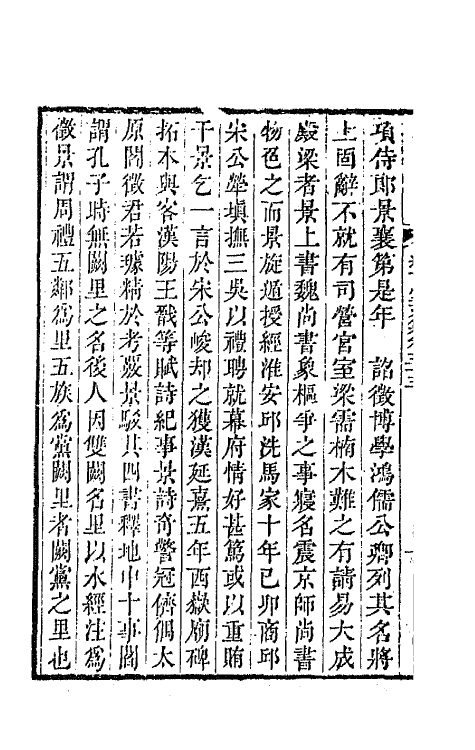 項侍郎景襄第是年　詔徵博學鴻儒公卿列其名將
上固辭不就有司營宮室梁需楠木難之有請易大成
殿梁者景上書魏尚書象樞爭之事寢名震京師尚書
物色之而景旋遁授經淮安邱洗馬家十年己卯商邱
宋公犖填撫三吳以禮聘就幕府情好甚篤或以重賄
干景乞一言於宋公峻却之獲漢延熹五年西嶽廟碑
拓本與客漢陽王戩等賦詩紀事景詩奇警冠儕偶太
原閻徵君若璩精於考覈景駁其四書釋地中十事閻
謂孔子時無闕里之名後人因雙闕名里以水經注為
徵景謂周禮五鄰為里五族為黨闕里者闕黨之里也